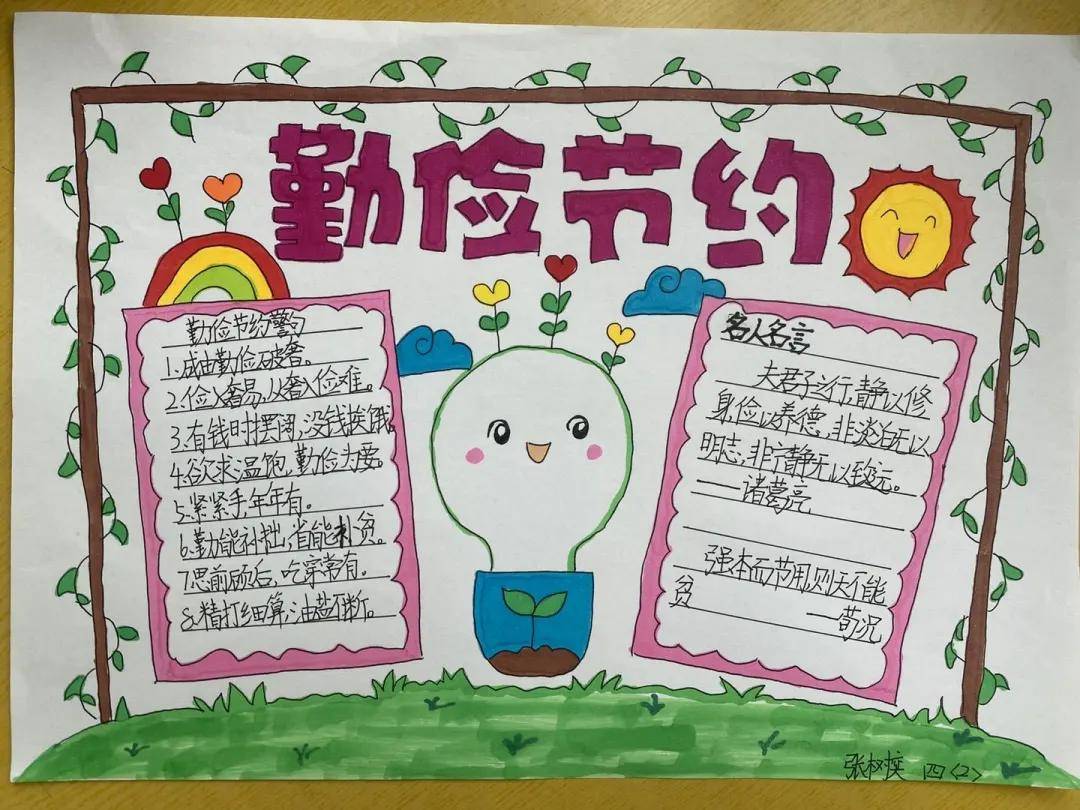 勤俭节约
勤俭节约警句
1.成由勤俭破奢。
2.俭入奢易,从奢入俭难。
3.有钱时摆阔,没钱挨饿
4.欲求温饱,勤俭为要。
5.紧紧手,年年有。
6.勤能补拙,省能补贫。
7思前顾后,吃穿常有。
8.精打细算,油盐不断。
名人名言
夫君子之行,静以修
身,俭以养德,非淡泊无以
明志,非宁静无以致远。
——诸葛亮
强本而节用,则天不能
贫
——荀况
张树 四<2>